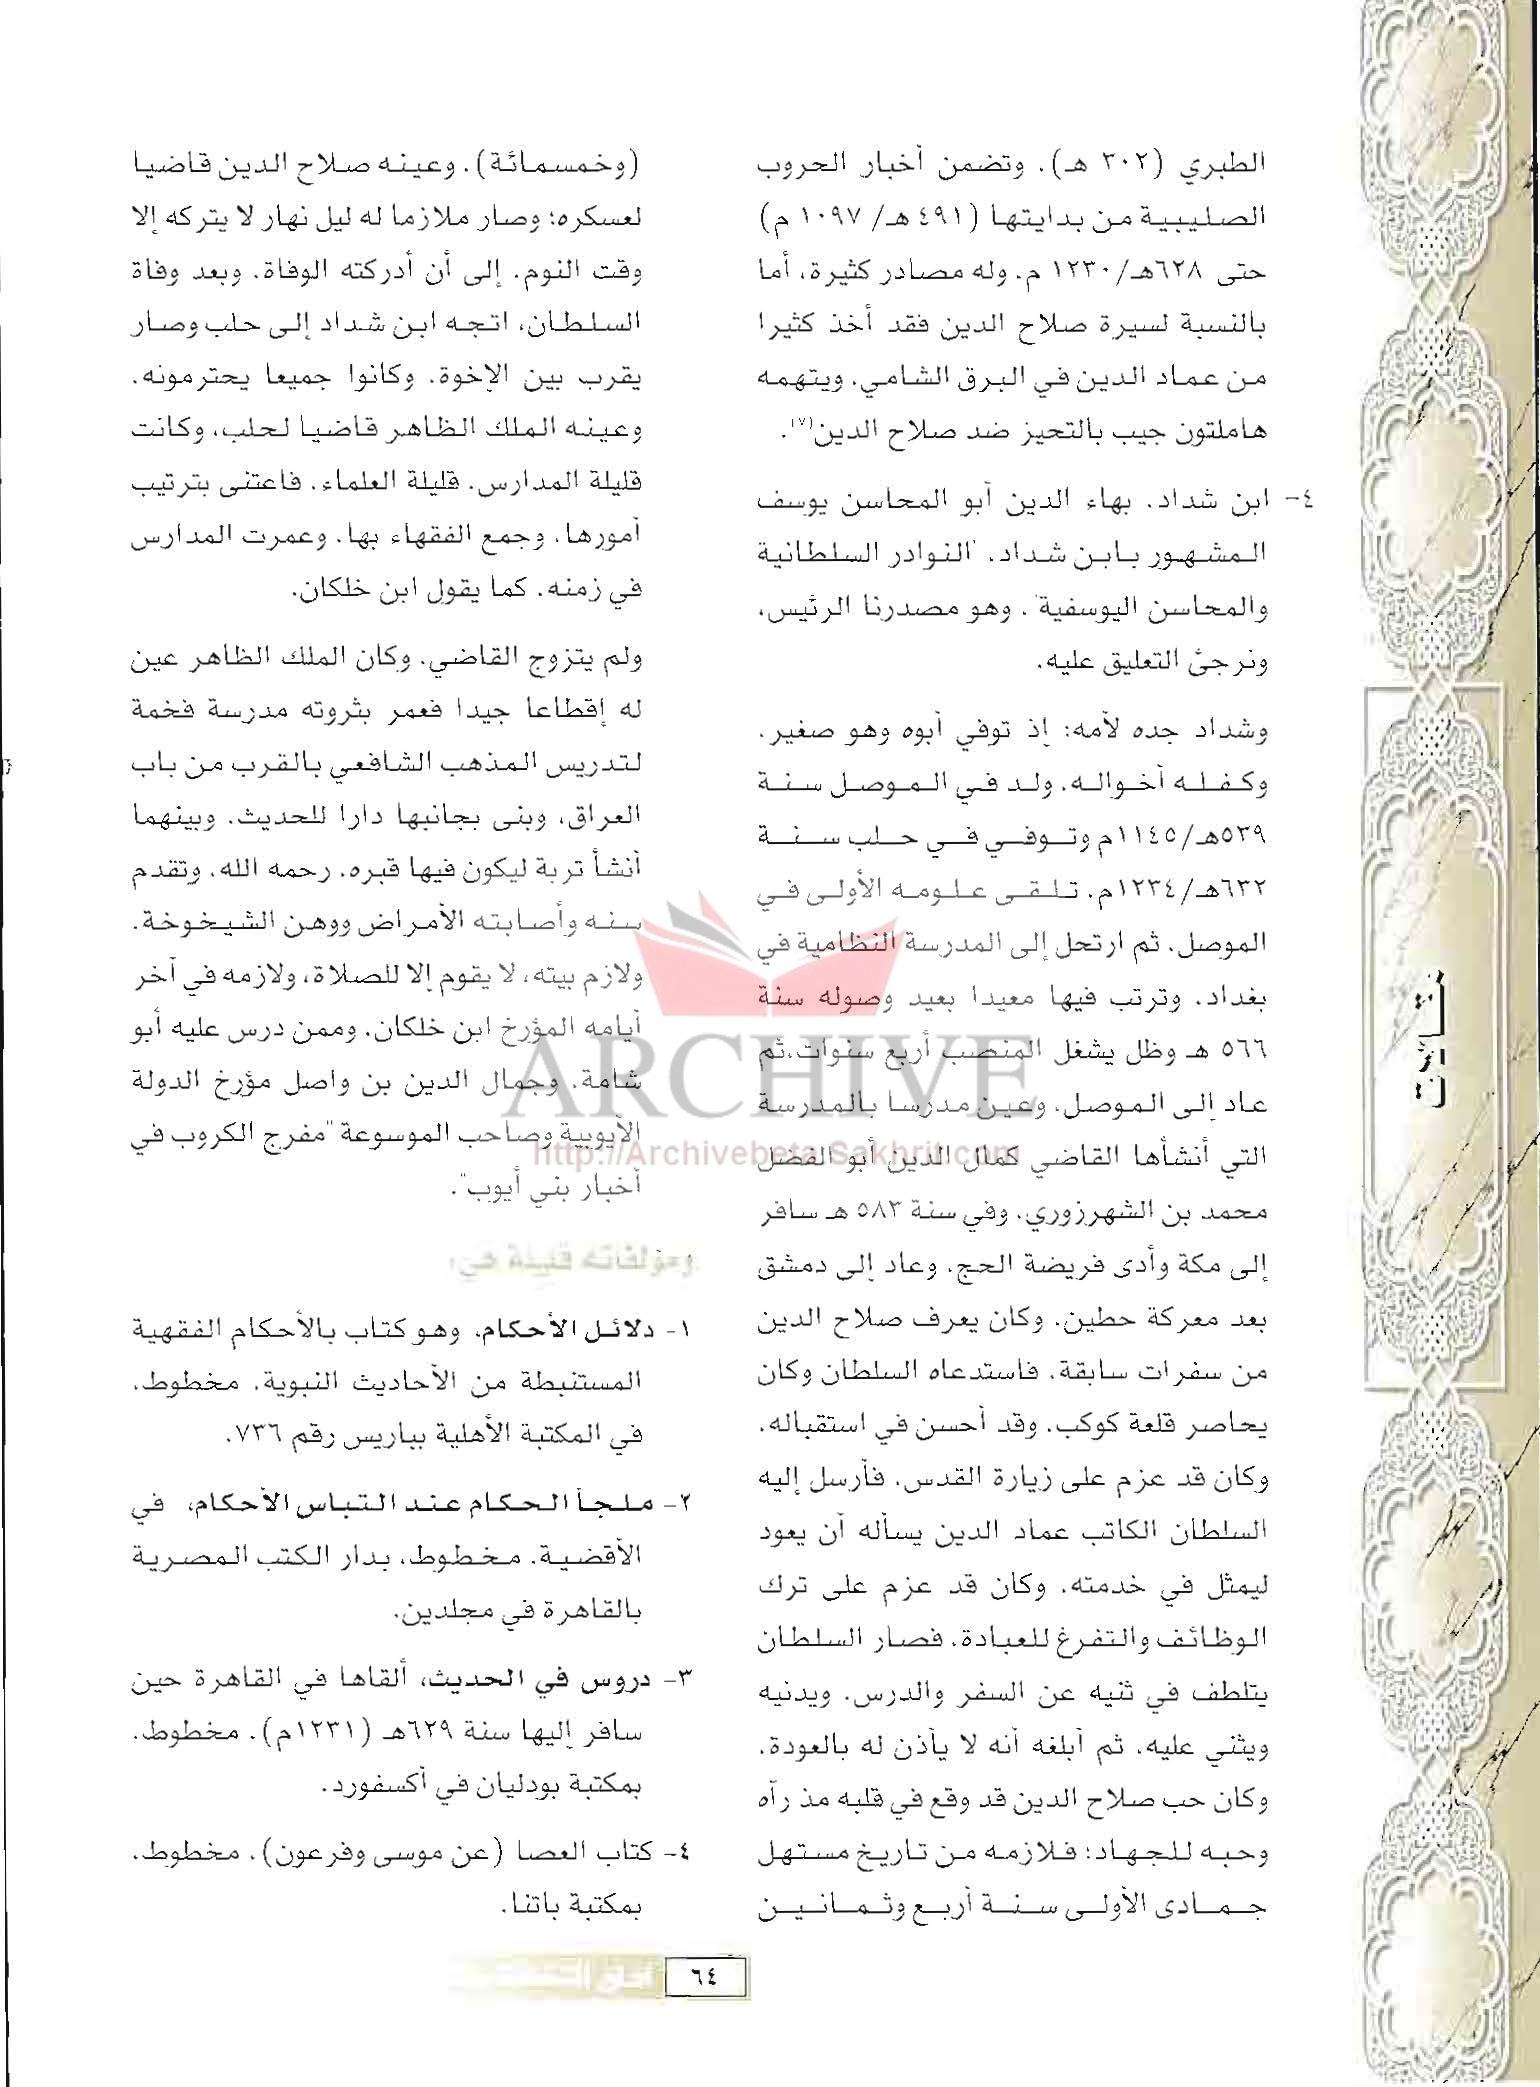 الطبري (٣٠٢ هـ). وتضمن أخبار الحروب
الصليبية من بدايتها (٤٩١ هـ/ ١٠٩٧ م)
حتى ٦٢٨هـ/١٢٣٠ م. وله مصادر كثيرة، أما
بالنسبة لسيرة صلاح الدين فقد أخذ كثيرا
من عماد الدين في البرق الشامي. ويتهمه
هاملتون جيب بالتحيز ضد صلاح الدين(٧).
٤- ابن شداد. بهاء الدين أبو المحاسن يوسف
المشهور بابن شداد. "النوادر السلطانية
والمحاسن اليوسفية". وهو مصدرنا الرئيس،
ونرجئ التعليق عليه.
وشداد جده لأمه: إذ توفي أبوه وهو صغير.
وكفله أخواله. ولد في الموصل سنة
٥٣٩هـ/١١٤٥م وتوفي في حلب سنة
٦٣٢هـ/١٢٣٤م. تلقى علومه الأولى في
الموصل. ثم ارتحل إلى المدرسة النظامية في
بغداد. وترتب فيها معيدا بعيد وصوله سنة
٥٦٦ هـ وظل يشغل المنصب أربع سنوات،ثم
عاد إلى الموصل. وعين مدرسا بالمدرسة
التي أنشأها القاضي كمال الدين أبو الفضل
محمد بن الشهرزوري. وفي سنة ٥٨٣ هـ سافر
إلى مكة وأدى فريضة الحج. وعاد إلى دمشق
بعد معركة حطين. وكان يعرف صلاح الدين
من سفرات سابقة. فاستدعاه السلطان وكان
يحاصر قلعة كوكب. وقد أحسن في استقباله.
وكان قد عزم على زيارة القدس. فأرسل إليه
السلطان الكاتب عماد الدين يسأله أن يعود
ليمثل في خدمته. وكان قد عزم على ترك
الوظائف والتفرغ للعبادة. فصار السلطان
يتلطف في ثنيه عن السفر والدرس. ويدنيه
ويثني عليه. ثم أبلغه أنه لا يأذن له بالعودة.
وكان حب صلاح الدين قد وقع في قلبه مذ رآه
وحبه للجهاد: فلازمه من تاريخ مستهل
جمادى الأولى سنة أربع وثمانين
(وخمسمائة). وعينه صلاح الدين قاضيا
لعسكره؛ وصار ملازما له ليل نهار لا يتركه إلا
وقت النوم. إلى أن أدركته الوفاة. وبعد وفاة
السلطان، اتجه ابن شداد إلى حلب وصار
يقرب بين الإخوة. وكانوا جميعا يحترمونه.
وعينه الملك الظاهر قاضيا لحلب، وكانت
قليلة المدارس. قليلة العلماء. فاعتنى بترتيب
أمورها. وجمع الفقهاء بها. وعمرت المدارس
في زمنه. كما يقول ابن خلكان.
ولم يتزوج القاضي. وكان الملك الظاهر عين
له إقطاعا جيدا فعمر بثروته مدرسة فخمة
لتدريس المذهب الشافعي بالقرب من باب
العراق، وبنى بجانبها دارا للحديث. وبينهما
أنشأ تربة ليكون فيها قبره. رحمه الله. وتقدم
سنه وأصابته الأمراض ووهن الشيخوخة.
ولازم بيته، لا يقوم إلا للصلاة، ولازمه في آخر
أيامه المؤرخ ابن خلكان. وممن درس عليه أبو
شامة. وجمال الدين بن واصل مؤرخ الدولة
الأيوبية وصاحب الموسوعة "مفرج الكروب في
أخبار بني أيوب".
ومؤلفاته قليلة هي:
١- دلائل الأحكام. وهو كتاب بالأحكام الفقهية
المستنبطة من الأحاديث النبوية. مخطوط.
في المكتبة الأهلية بباريس رقم ٧٣٦.
٢- ملجأ الحكام عند التباس الأحكام، في
الأقضية. مخطوط، بدار الكتب المصرية
بالقاهرة في مجلدين.
٣- دروس في الحديث، ألقاها في القاهرة حين
سافر إليها سنة ٦٢٩هـ (١٢٣١م). مخطوط.
بمكتبة بودليان في أكسفورد.
٤- كتاب العصا (عن موسى وفرعون). مخطوط.
بمكتبة باتنا.
ARCHIVE
http://Archivebeta.Sakhrit.com
٦٤